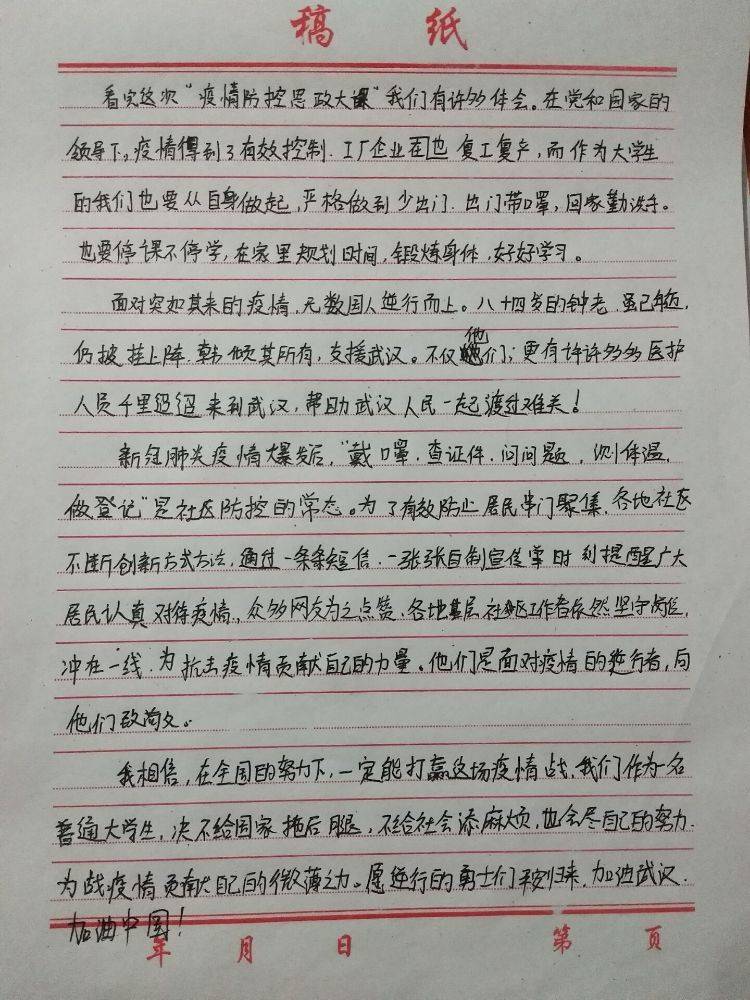 稿 纸
看完这次“疫情防控思政大课”我们有许多体会。在党和国家的
领导下,疫情得到了有效控制.工厂企业也 复工复产,而作为大学生
的我们也要从自身做起,严格做到少出门.出门带口罩,回家勤洗手。
也要停课不停学,在家里规划时间,锻炼身体,好好学习。
面对突如其来的疫情,无数国人逆行而上。八十四岁的钟老,虽已年近,
仍披挂上阵.韩倾其所有,支援武汉。不仅他们;更有许许多多医护
人员千里迢迢来到武汉,帮助武汉人民一起渡过难关!
新冠肺炎疫情爆发后,“戴口罩.查证件.问问题,测体温,
做登记”是社区防控的常态。为了有效防止居民串门聚集,各地社区
不断创新方式方法,通过一条条短信,一张张自制宣传单时刻提醒广大
居民认真对待疫情,众多网友为之点赞.各地基层社区工作者依然坚守岗位,
冲在一线.为抗击疫情贡献自己的力量。他们是面对疫情的逆行者,向
他们致
我相信,在全国的努力下,一定能打赢这场疫情战,我们作为一名
普通大学生,决不给国家拖后腿,不给社会添麻烦,也会尽自己的努力.
为战疫情贡献自己的微薄之力。愿逆行的勇士们平安归来,加油武汉.
加油中国!
年 月 日 第 页